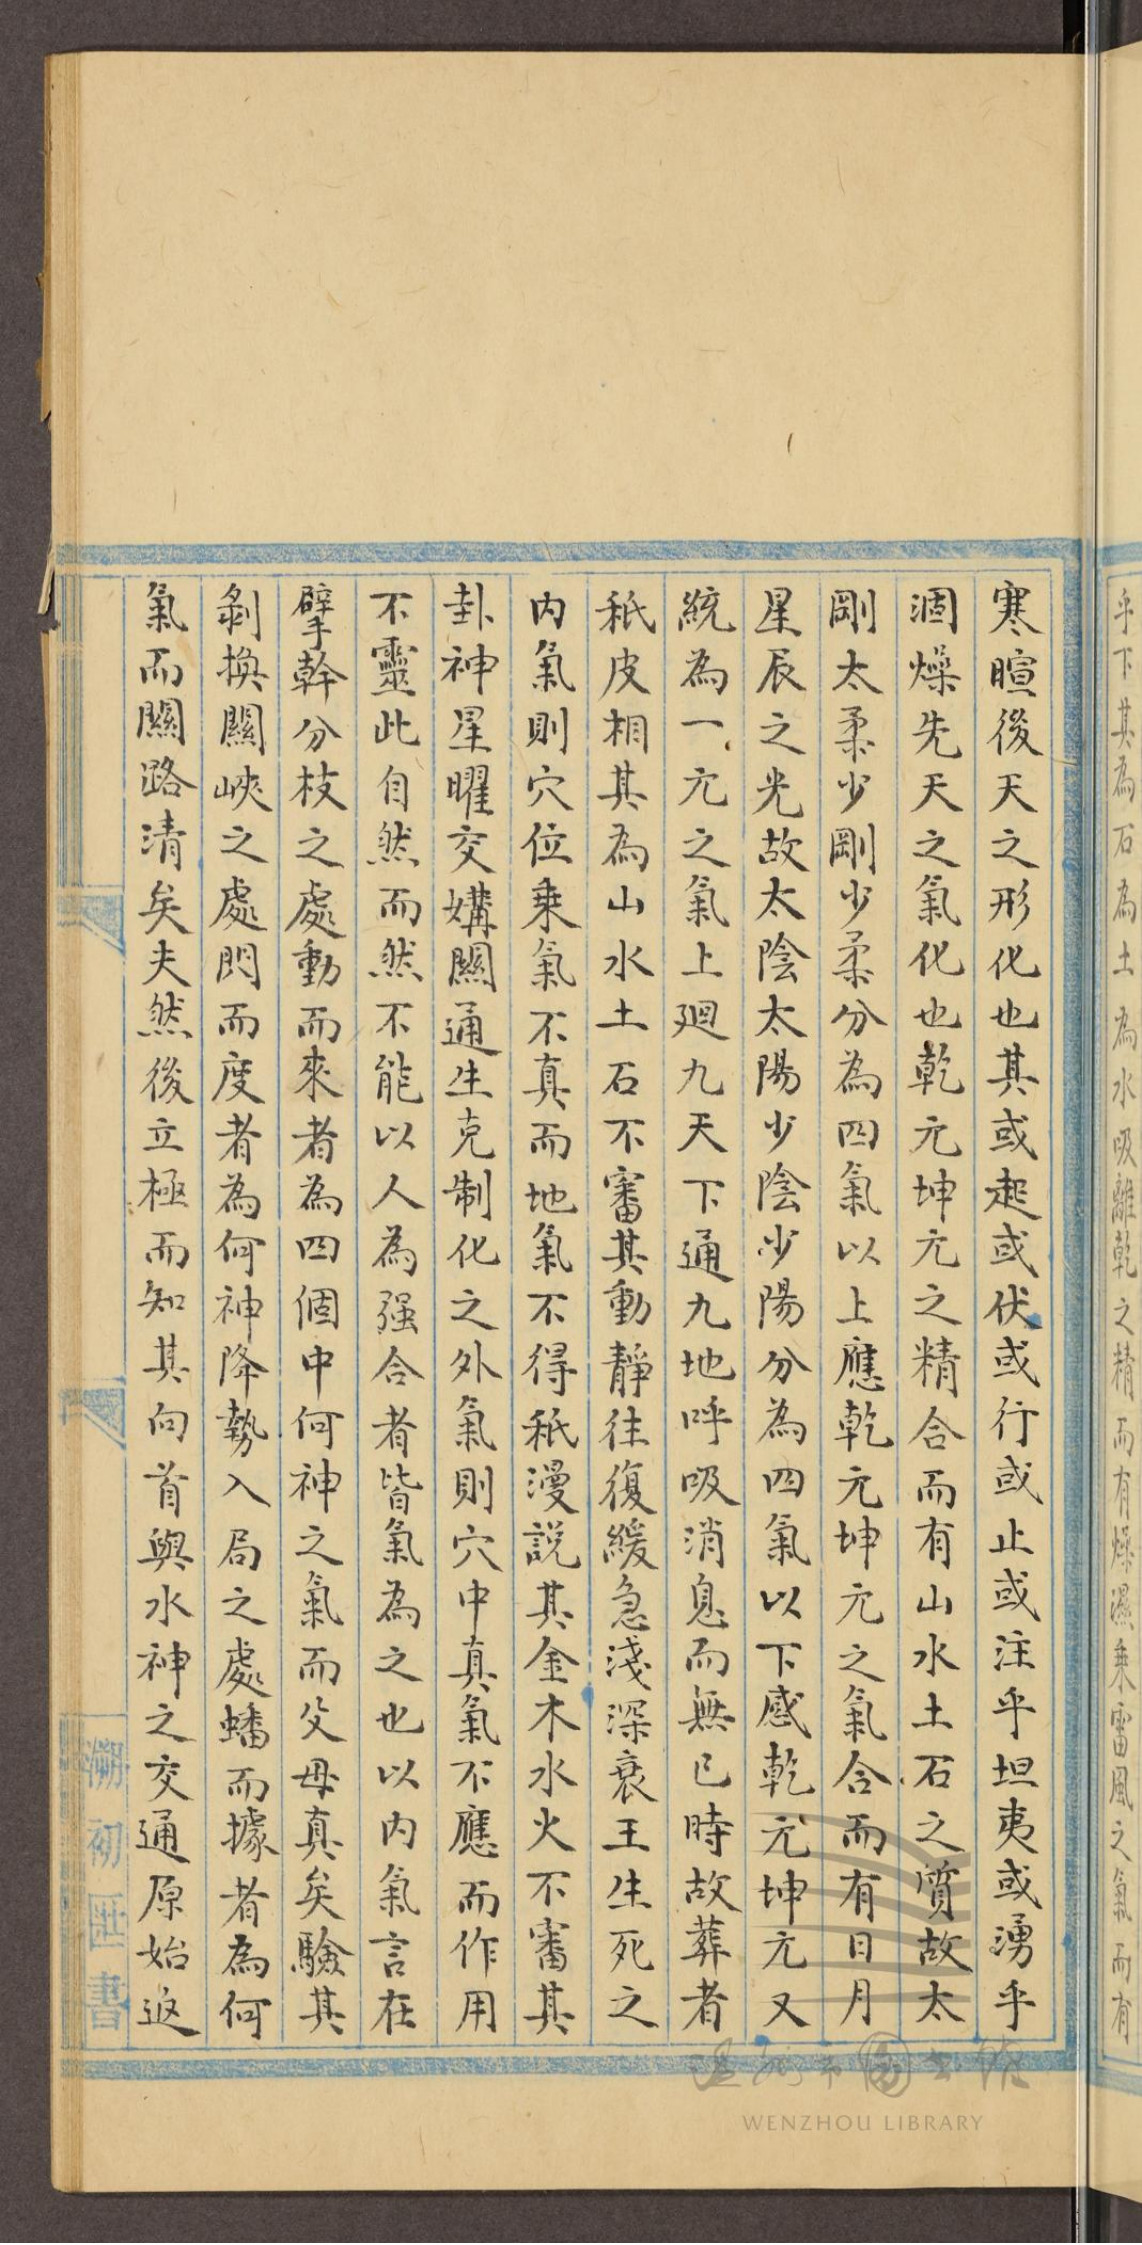 乎下其為石為土為水吸離乾之精而有燥濕乗雷風之氣而有
寒暄後天之形化也其或起或伏或行或止或注乎坦夷或湧乎
涸燥先天之氣化也乾元坤元之精合而有山水土石之質故太
剛太柔少剛少柔分為四氣以上應乾元坤元之氣合而有日月
星辰之光故太陰太陽少陰少陽分為四氣以下感乾元坤元又
統為一元之氣上廻九天下通九地呼吸消息而無已時故葬者
秖皮相其為山水土石不審其動靜往復緩急淺深衰王生死之
內氣則穴位乗氣不真而地氣不得秖漫説其金木水火不審其
卦神星曜交媾關通生克制化之外氣則穴中真氣不應而作用
不靈此自然而然不能以人為强合者皆氣為之也以內氣言在
擘幹分枝之處動而來者為四個中何神之氣而父母真矣驗其
剝換關峽之處閃而度者為何神降勢入局之處蟠而據者為何
氣而關路清矣夫然後立極而知其向首與水神之交通原始返
溯初匨書
WENZHOU LIBRARY